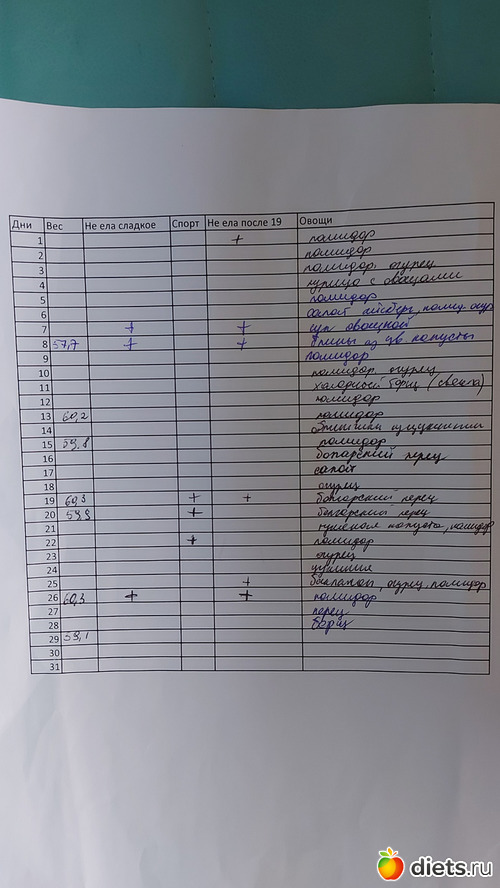 Дни Вес Не ела сладкое Спорт Не ела после 19 Овощи
1 + помидор
2 помидор
3 помидор, огурец
4 курица с овощами
5 помидор
6 салат айсберг, помид, огур
7 + + суп овощной
8 57,7 + + блины из цв. капусты
9 помидор
10 помидор, огурец
11 холодный борщ (свекла)
12 помидор
13 60,2 помидор
14 из цуккини
15 59,8 помидор
16 болгарский перец
17 салат
18 огурец
19 60,3 + + болгарский перец
20 59,9 + болгарский перец
21 тушеная капуста, помидор
22 + помидор
23 огурец
24
25 + баклажан, огурец, помидор
26 60,3 + + помидор
27 перец
28 борщ
29 59,1
30
31
diets.ru